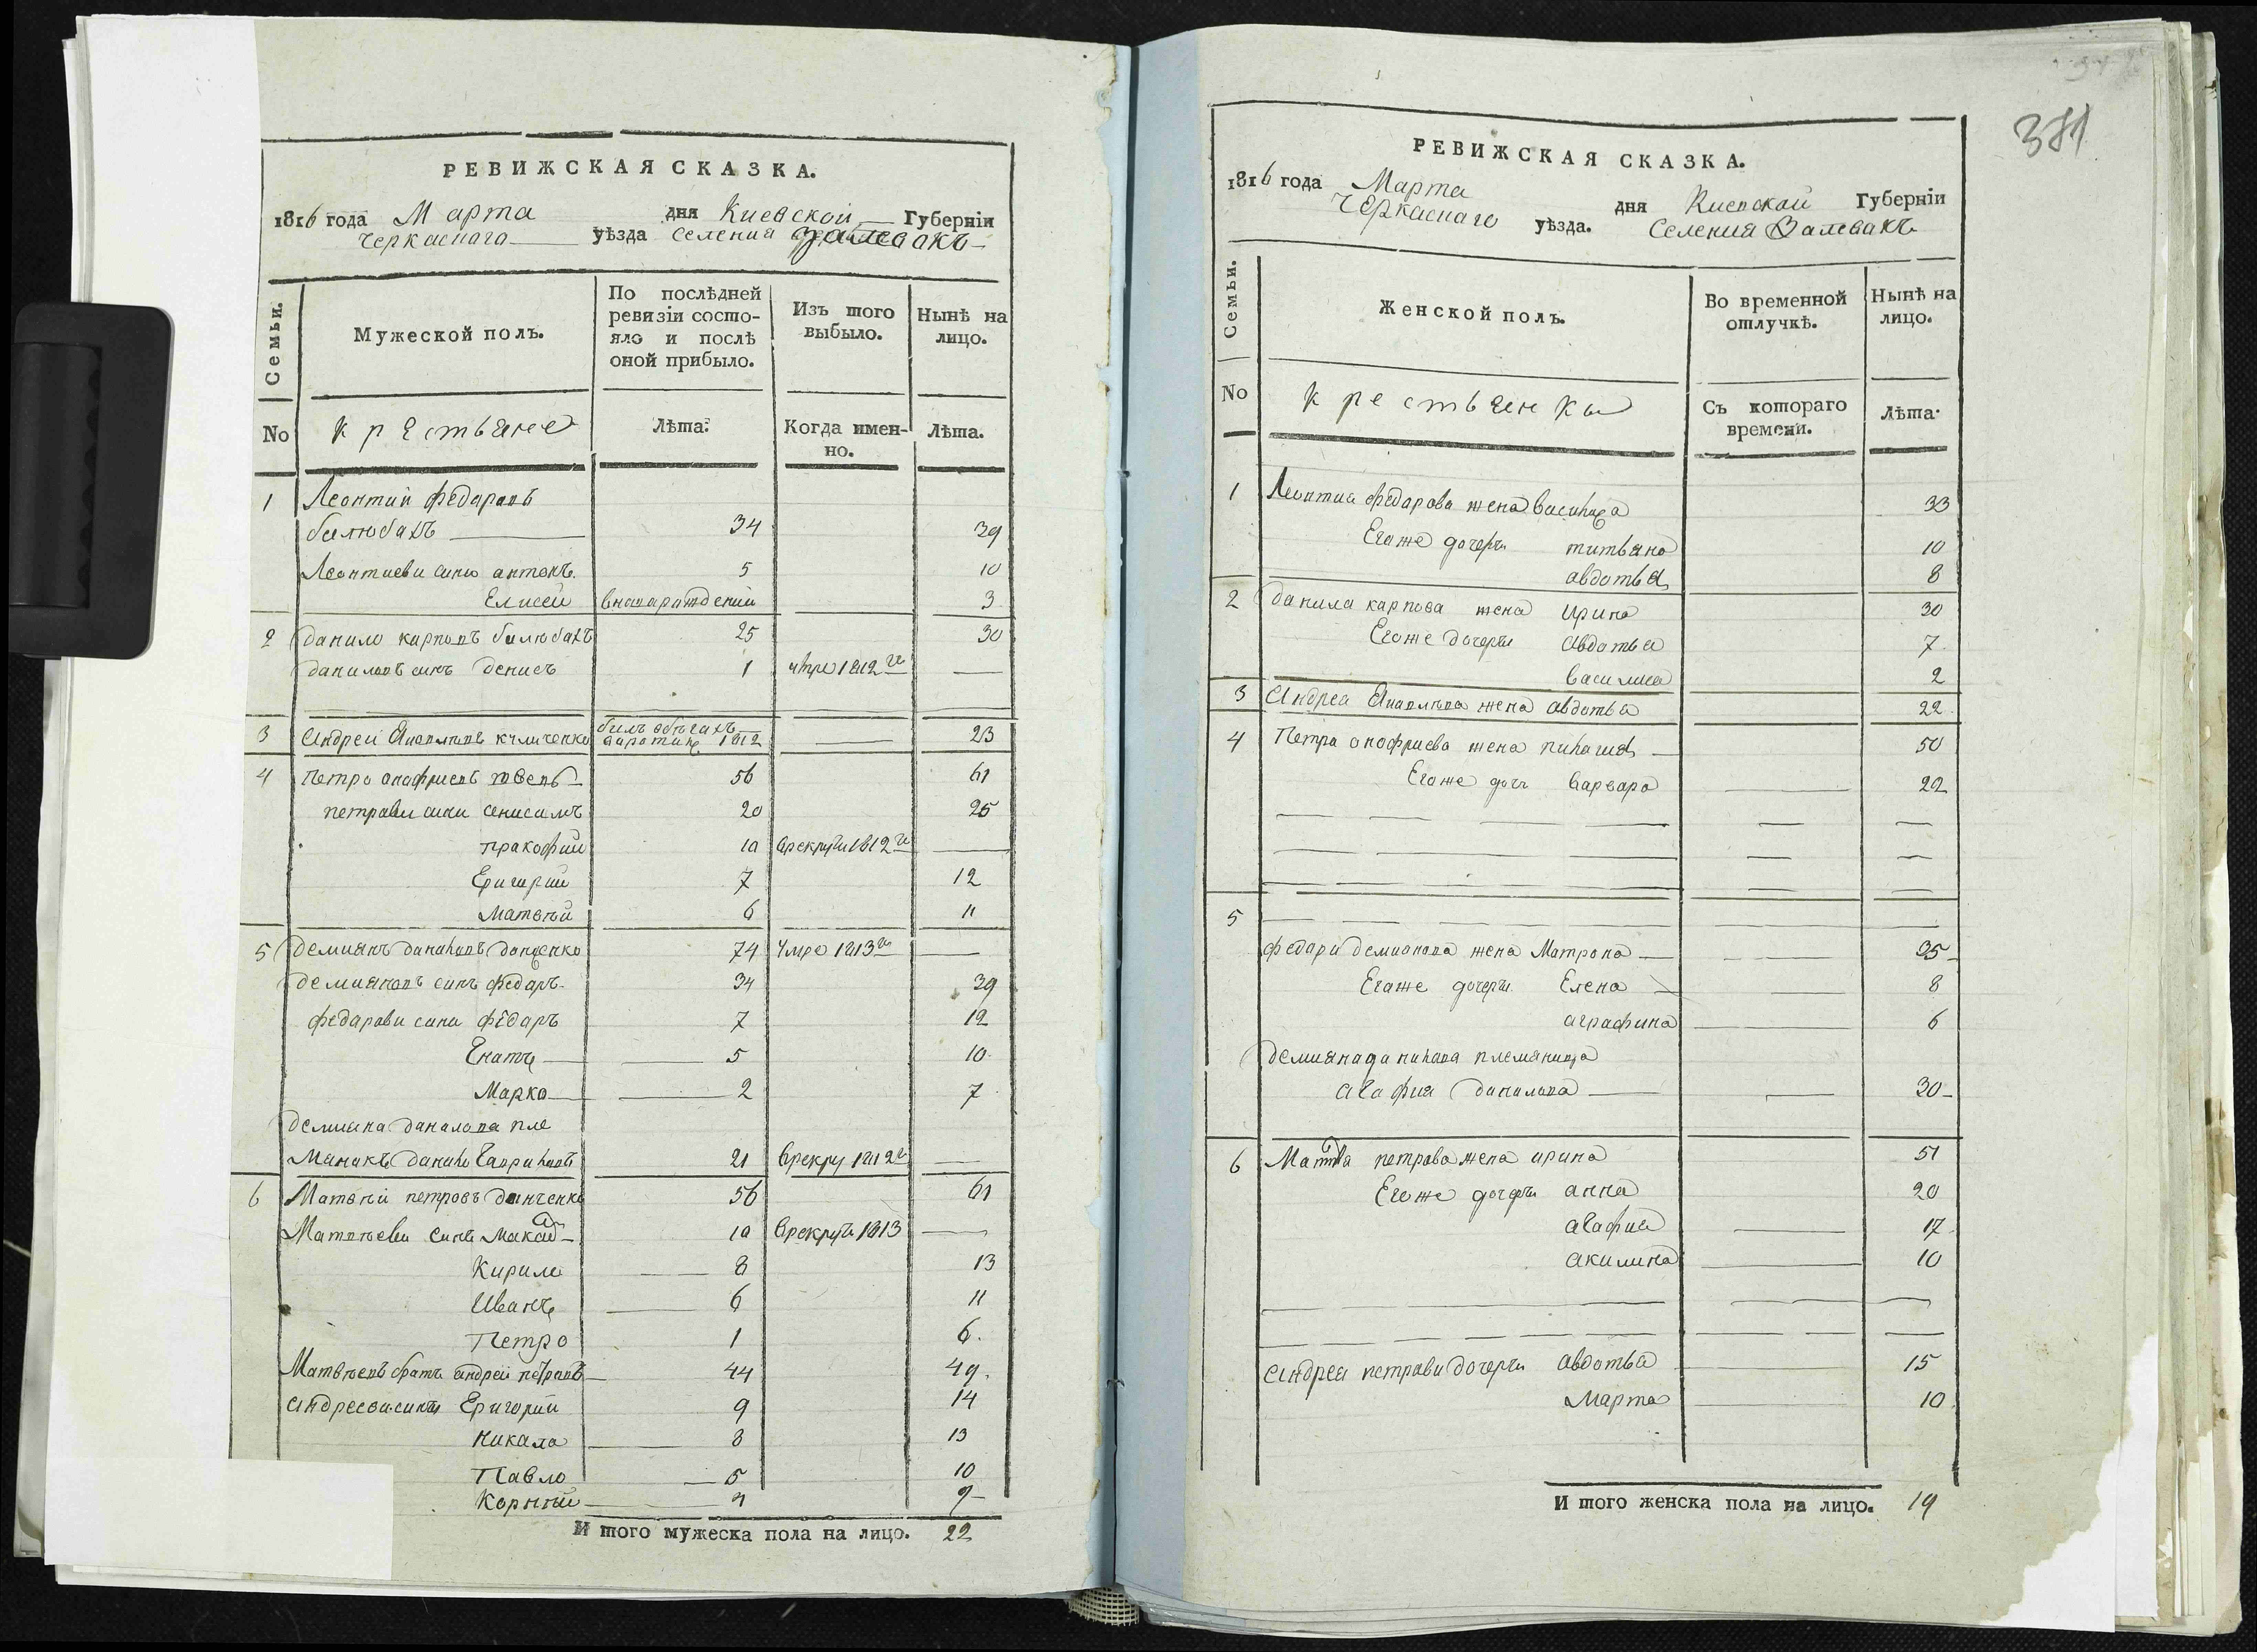 РЕВИЖСКАЯ СКАЗКА.
1816 года Марта дня Киевской Губерніи
Черкаскаго уѣзда селения Валевакъ
Семьи.
Мужеской полъ.
По послѣдней ревизіи состояло и послѣ оной прибыло.
Изъ того выбыло.
Нынѣ на лицо.
No
крестьяне
Лѣта.
Когда именно.
Лѣта.
1 Леонтий федаровъ
билюбахъ 34 39
Леонтиеви сини антонъ 5 10
Елисей вноварождений 3
2 данило карповъ билюбахъ 25 30
даниловъ синъ денисъ 1 умре 1812 го —
3 Андрей 1812 — 23
4 петро анофриевъ 56 61
петрови сини 20 25
пракофий 10 врекруты 1812 го —
Григорий 7 12
Матвѣй 6 11
5 демиянъ 74 Умре 1813 го —
демияновъ синъ федаръ 34 39
федарови сини федаръ 7 12
Гнатъ 5 10
Марко 2 7
демияна данилова пле
мяникъ данило Гаврилов 21 врекру 1812 го —
6 Матвѣй петровъ 56 61
Матвѣеви сини 10 врекруты 1813 —
Кирило 8 13
Иванъ 6 11
Петро 1 6.
Матвѣевъ братъ андрей петровъ 44 49.
андреевы сини Григорий 9 14
Никала 8 13
Павло 5 10
Корнѣй 4 9
И того мужеска пола на лицо. 22
381
РЕВИЖСКАЯ СКАЗКА.
1816 года Марта дня Киевской Губерніи
Черкаснаго уѣзда. Селения Валевакъ
Семьи.
Женской полъ.
Во временной отлучкѣ.
Нынѣ на лицо.
No
крестьянки
Съ котораго времени.
Лѣта.
1 Леонтия федарова жена 33
Егоже дочери титьяна 10
авдотья 8
2 данила карпова жена Ирина 30
Егоже дочери авдотья 7
василиса 2
3 Андрея жена авдотья 22
4 Петра анофриева жена 50
Егоже дочь варвара — 22
5
федара демианова жена Матрона — 35
Егоже дочери Елена — 8
аграфина — 6
племяница
агафия данилова — 30
6 петрова жена ирина 51
Егоже дочери анна 20
агафия — 17
акилина — 10
андрея петрова дочери авдотья — 15
Марта — 10
И того женска пола на лицо. 19